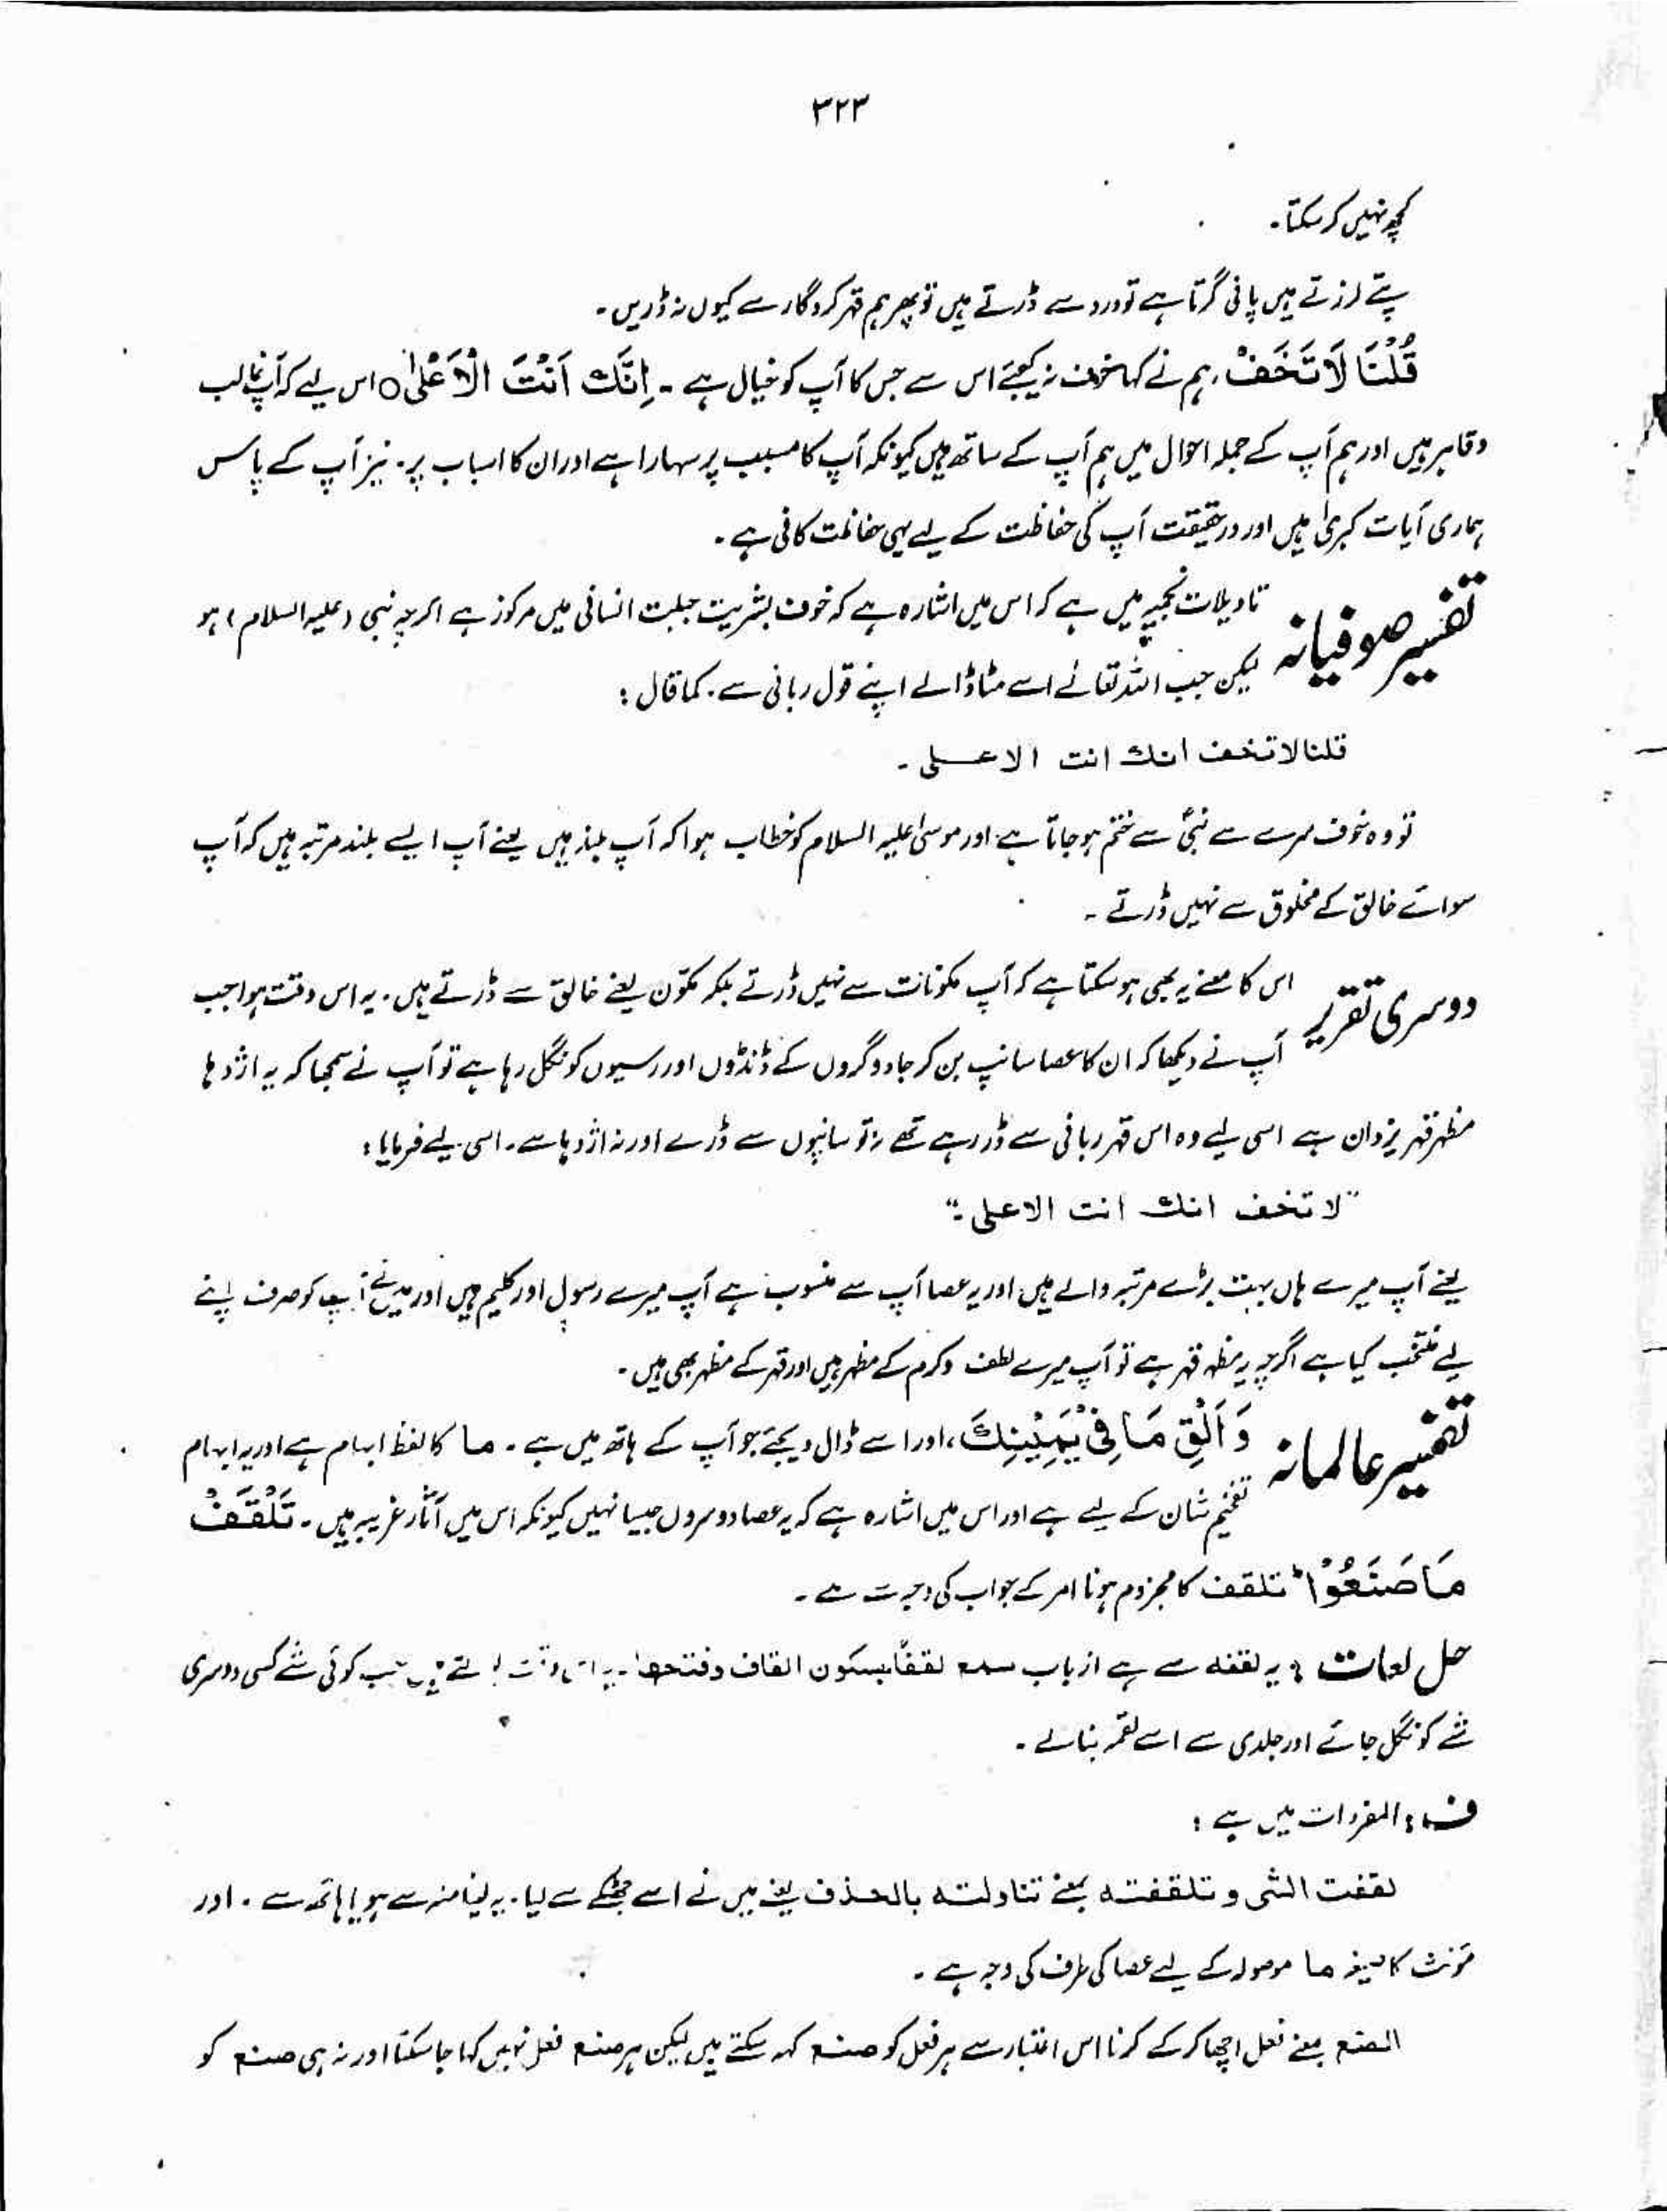 ۳۲۳
کچھ نہیں کر سکتا۔
پتے لرزتے ہیں پانی گرتا ہے تو درد سے ڈرتے ہیں تو پھر ہم قہر کردگار سے کیوں نہ ڈریں۔
قُلْنَا لَا تَخَفْ، ہم نے کہا خوف نہ کیجئے اس سے جس کا آپ کو خیال ہے۔ اِنَّكَ اَنْتَ الْاَعْلٰى ○ اس لیے کہ آپ غالب
وقاہر ہیں اور ہم آپ کے جملہ احوال میں ہم آپ کے ساتھ ہیں کیونکہ آپ کا مسبب پر سہارا ہے اور ان کا اسباب پر۔ نیز آپ کے پاس
ہماری آیات کبریٰ ہیں اور درحقیقت آپ کی حفاظت کے لیے یہی حفاظت کافی ہے۔
تفسیر صوفیانہ تاویلات نجمیہ میں ہے کہ اس میں اشارہ ہے کہ خوف بشریت جبلت انسانی میں مرکوز ہے اگرچہ نبی (علیہ السلام) ہو
لیکن جب اللہ تعالٰے اسے مٹا ڈالے اپنے قول ربانی سے۔ کما قال :
قلنا لا تخف انك انت الاعلى۔
تو وہ خوف سرے سے نبیؑ سے ختم ہو جاتا ہے اور موسیٰ علیہ السلام کو خطاب ہوا کہ آپ بلند ہیں یعنے آپ ایسے بلند مرتبہ ہیں کہ آپ
سوائے خالق کے مخلوق سے نہیں ڈرتے۔
دوسری تقریر اس کا معنے یہ بھی ہو سکتا ہے کہ آپ مکونات سے نہیں ڈرتے بلکہ مکوّن یعنے خالق سے ڈرتے ہیں۔ یہ اس وقت ہوا جب
آپ نے دیکھا کہ ان کا عصا سانپ بن کر جادوگروں کے ڈنڈوں اور رسیوں کو نگل رہا ہے تو آپ نے سمجھا کہ یہ اژدہا
مظہر قہر یزدان ہے اسی لیے وہ اس قہر ربانی سے ڈر رہے تھے نہ تو سانپوں سے ڈرے اور نہ اژدہا سے۔ اسی لیے فرمایا :
"لا تخف انك انت الاعلى۔"
یعنے آپ میرے ہاں بہت بڑے مرتبہ والے ہیں اور یہ عصا آپ سے منسوب ہے آپ میرے رسول اور کلیم ہیں اور میں نے آپ کو صرف اپنے
لیے منتخب کیا ہے اگرچہ یہ مظہر قہر ہے تو آپ میرے لطف وکرم کے مظہر ہیں اور قہر کے مظہر بھی ہیں۔
تفسیر عالمانہ وَاَلْقِ مَا فِيْ يَمِيْنِكَ، اور اسے ڈال دیجئے جو آپ کے ہاتھ میں ہے۔ ما کا لفظ ابہام ہے اور یہ ابہام
تفخیم شان کے لیے ہے اور اس میں اشارہ ہے کہ یہ عصا دوسروں جیسا نہیں کیونکہ اس میں آثار غریبہ ہیں۔ تَلْقَفْ
مَا صَنَعُوْا ؕ تلقف کا مجزوم ہونا امر کے جواب کی وجہ سے۔
حل لغات : یہ لقفہ سے ہے از باب سمع لقفًا بسکون القاف وفتحھا۔ یہ اس وقت بولتے ہیں جب کوئی شے کسی دوسری
شے کو نگل جائے اور جلدی سے اسے لقمہ بنالے۔
ف : المفردات میں ہے :
لقفت الشی و تلقفتہ بمعنے تناولتہ بالحذف یعنے میں نے اسے جھٹکے سے لیا۔ یہ لینا منہ سے ہو یا ہاتھ سے۔ اور
مؤنث کا صیغہ ما موصولہ کے لیے عصا کی طرف کی وجہ ہے۔
الصنع بمعنے فعل اچھا کر کے کرنا اس اعتبار سے ہر فعل کو صنع کہہ سکتے ہیں لیکن ہر صنع فعل نہیں کہا جا سکتا اور نہ ہی صنع کو